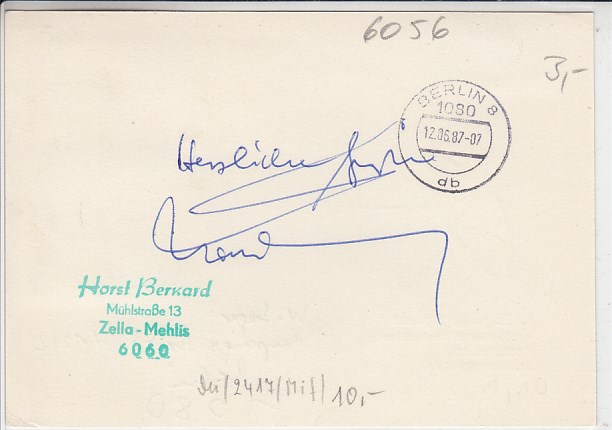 6056
3,-
BERLIN 8
1080
12.06.87-07
db
Herzliche Grüße
Horst Bernard
Mühlstraße 13
Zella-Mehlis
6060
/2417/Mif/ 10,-